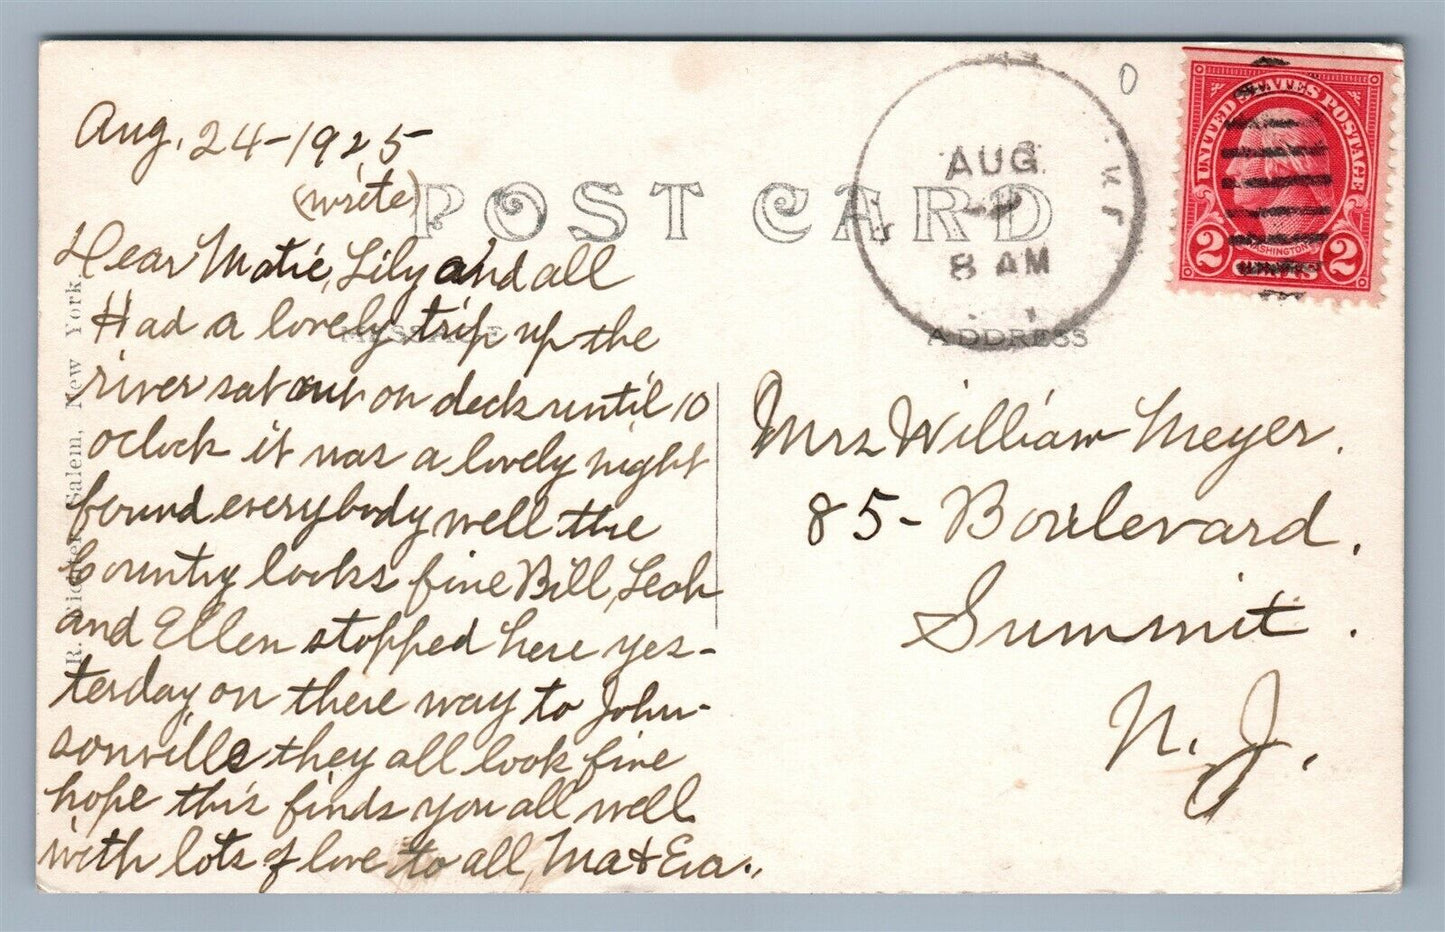 Aug. 24-1925
(write)
Dear Matie, Lily and all
Had a lovely trip up the
river sat out on deck until 10
oclock it was a lovely night
found everybody well the
Country looks fine Bill, Leah
and Ellen stopped here yes-
terday on there way to John-
sonville they all look fine
hope this finds you all well
with lots of love to all, Ma & Eva.,
POST CARD
MESSAGE
ADDRESS
AUG
8 AM
N.Y.
UNITED STATES POSTAGE
WASHINGTON
2 CENTS 2
Mrs William Meyer.
85- Boulevard.
Summit.
N. J.
Salem, New York